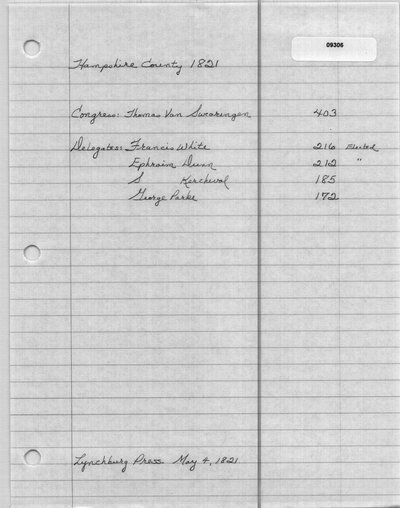 09306
Hampshire County 1821
Congress: Thomas Van Swearingen 403
Delegates: Francis White 216 Elected
Ephraim Dunn 212 "
S Kercheval 185
George Parke 172
Lynchburg Press. May 4, 1821